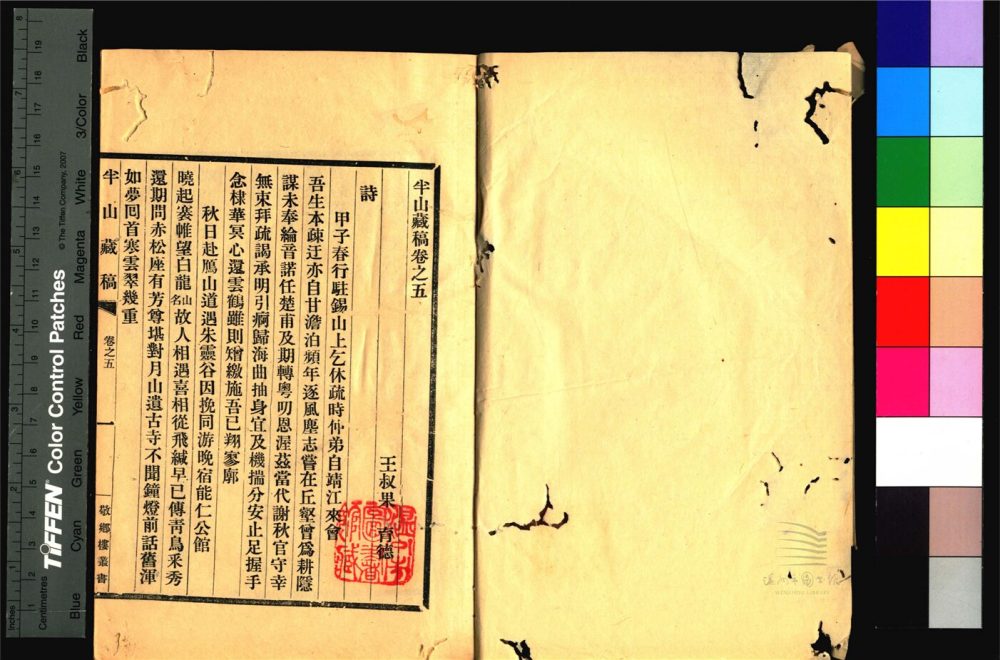 半山藏稿卷之五
王叔果 育德
詩
甲子春行駐錫山上乞休疏時仲弟自靖江來會
吾生本疎迂亦自甘澹泊頻年逐風塵志嘗在丘壑曾爲耕隱
謀未奉綸音諾任楚甫及期轉粵叨恩渥茲當代謝秋官守幸
無束拜疏謁承明引痾歸海曲抽身宜及機揣分安止足握手
念棣華冥心還雲鶴雖則矰繳施吾已翔寥廓
秋日赴鴈山道遇朱靈谷因挽同游晚宿能仁公館
曉起褰帷望白龍山名故人相遇喜相從飛緘早已傳靑鳥采秀
還期問赤松座有芳尊堪對月山遺古寺不聞鐘燈前話舊渾
如夢囘首寒雲翠幾重
半山藏稿
卷之五
敬鄉樓叢書
TIFFEN® Color Control Patches
© The Tiffen Company, 2007
Inches
Centimetres
Blue
Cyan
Green
Yellow
Red
Magenta
White
3/Color
Black
WENZHOU LIBRARY